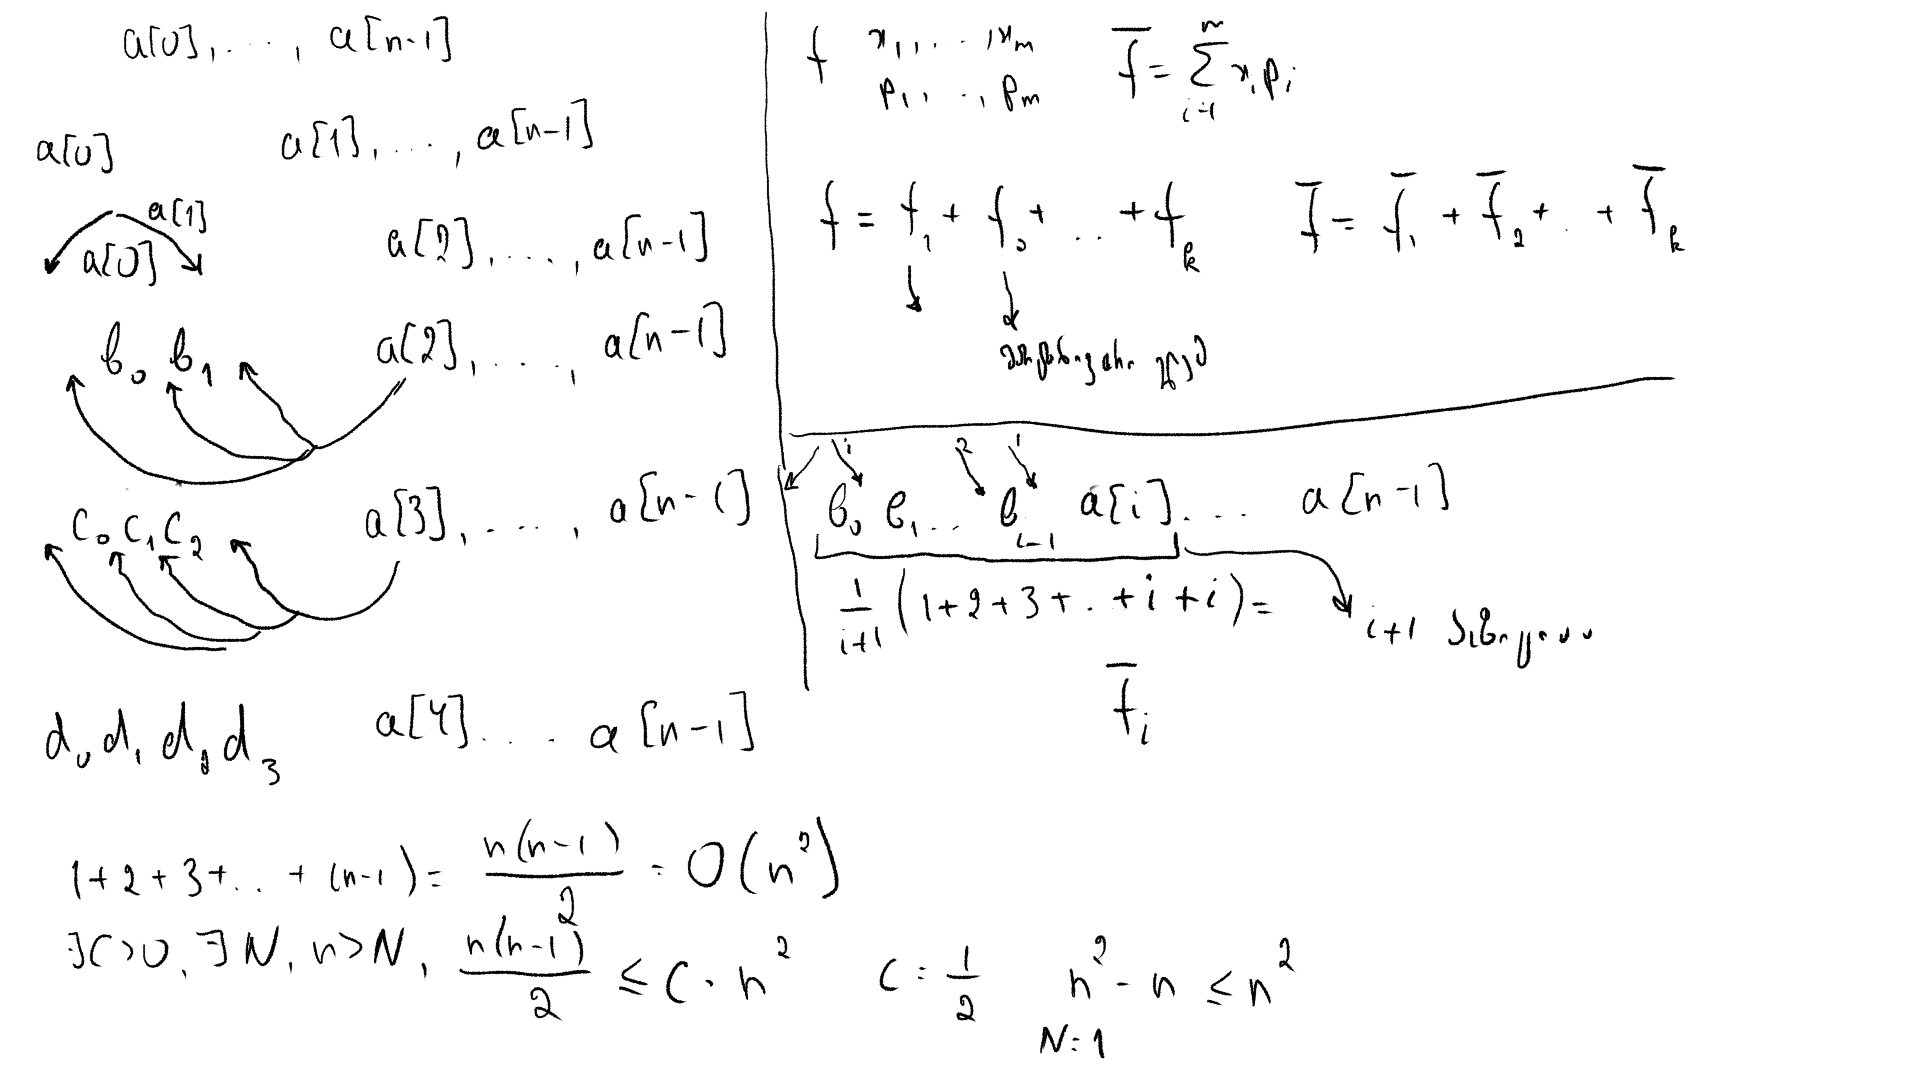 a[0], ..., a[n-1]
a[0] a[1], ..., a[n-1]
a[1]
a[0] a[2], ..., a[n-1]
b₀ b₁ a[2], ..., a[n-1]
c₀ c₁ c₂ a[3], ..., a[n-1]
d₀ d₁ d₂ d₃ a[4] ... a[n-1]
1+2+3+..+(n-1) = n(n-1)/2 = O(n²)
∃C>0, ∃N, n>N, n(n-1)/2 ≤ C·n² C = 1/2 n²-n ≤ n²
N=1
f x₁, ..., xₘ f̅ = ∑ᵢ₌₁ᵐ xᵢpᵢ
p₁, ..., pₘ
f = f₁ + f₂ + ... + fₖ f̅ = f̅₁ + f̅₂ + .. + f̅ₖ
i 2 1
b₀ b₁ ... bᵢ₋₁ a[i] ... a[n-1]
1/(i+1) (1+2+3+..+i+i) = i+1
f̅ᵢ